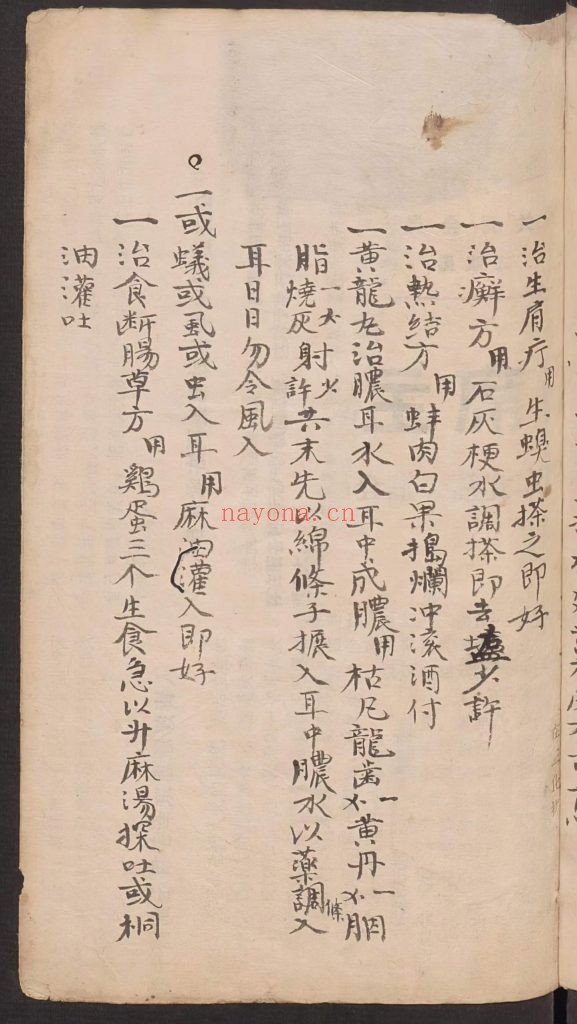 一治生肩疔用生螝虫搽之即好
一治癬方用石灰梗水調搽即去盐少許
一治熱結方用蚌肉白果搗爛冲滚酒付
一黃龍丸治膿耳水入耳中成膿用枯凡龍歯一黃丹一胭
脂一燒灰射少許共末先以綿條子搌入耳中膿水以藥調條入
耳日日勿令風入
一或蟻或虱或虫入耳用麻油灌入即好
一治食断腸草方用鷄蛋三个生食急以升麻湯探吐或桐
油灌吐
nayona.cn